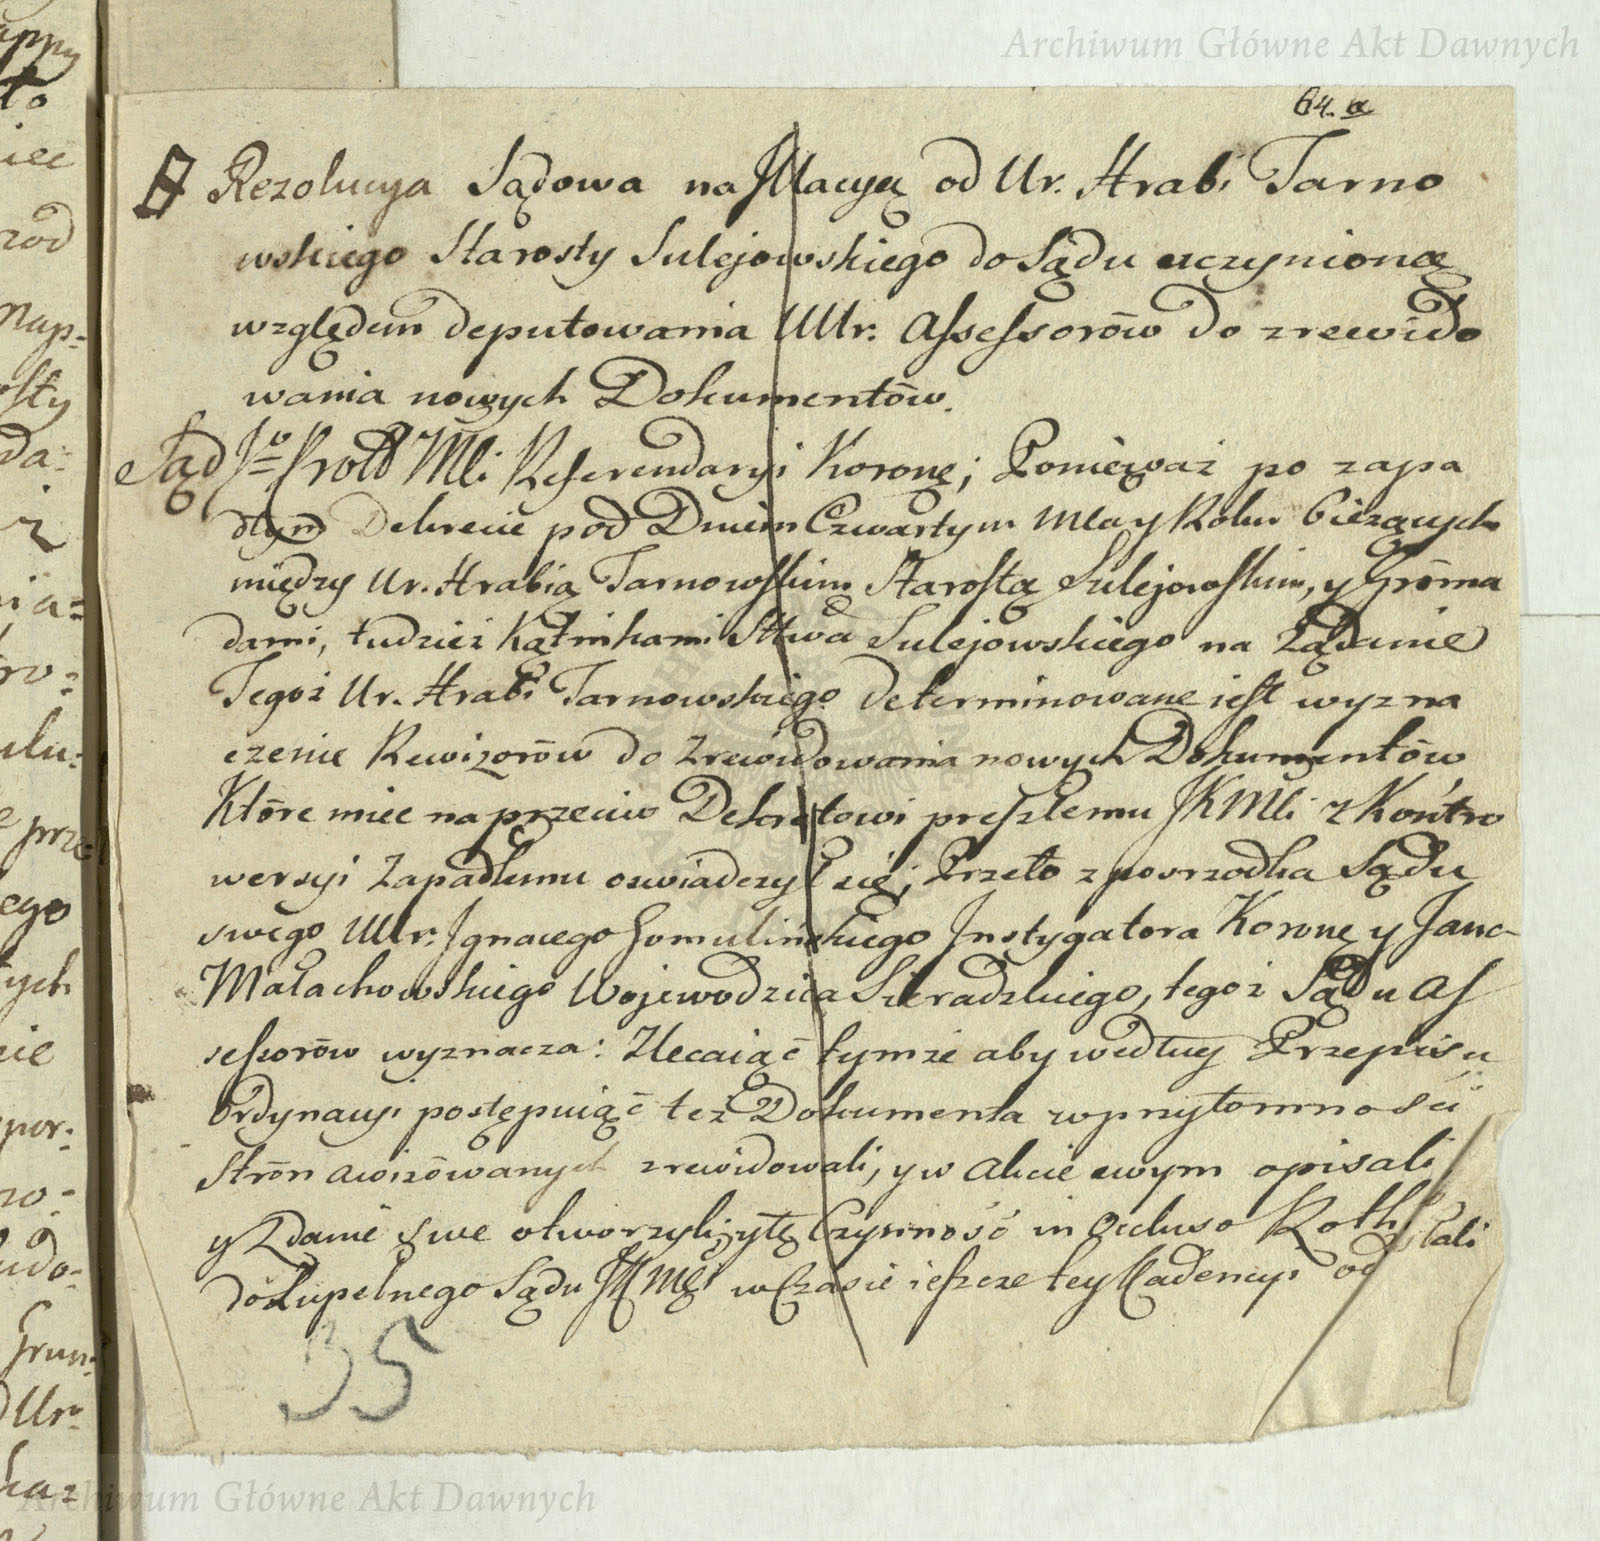 Archiwum Główne Akt Dawnych
64. a
Rezolucya Sądowa na Illacyą od Ur. Hrabi Tarno
wskiego Starosty Sulejowskiego do Sądu uczynioną
względem deputowania Ulr. Assessorów do zrewido
wania nowych Dokumentów.
Sąd Jo Kroll Mci Referendaryi Koronę; Ponieważ po zapa
dłym Dekrecie pod Dniem Czwartym Mca y Roku bieżących
między Ur. Hrabią Tarnowskim Starostą Sulejowskim, y Groma
dami, tudzież Kątnikami Sttwa Sulejowskiego na Żądanie
Tegoż Ur. Hrabi Tarnowskiego determinowane iest wyzna
czenie Rewizorów do Zrewidowania nowych Dokumentów
Które miec na przeciw Dekretowi preszłemu JKMci z Kontro
wersyi Zapadłemu oswiadczył się; Przeto z posrzodka Sądu
swego Ulr. Ignacego Gomulinskiego Instygatora Koronę y Jana
Małachowskiego Wojewodzica Sieradzkiego, tegoż Sądu As
sessorów wyznacza: Zlecaiąc tymże aby według Przepisu
Ordynacyi postępuiąc też Dokumenta w przytomnosci
Strón awizowanych zrewidowali, y w Akcie swym opisali
y Zdanie swe otworzyli, y tę Czynność in Ocluso Roth pali
do Zupełnego Sądu JKMci w Czasie ieszcze tey Kadencyi od
35
Archiwum Główne Akt Dawnych